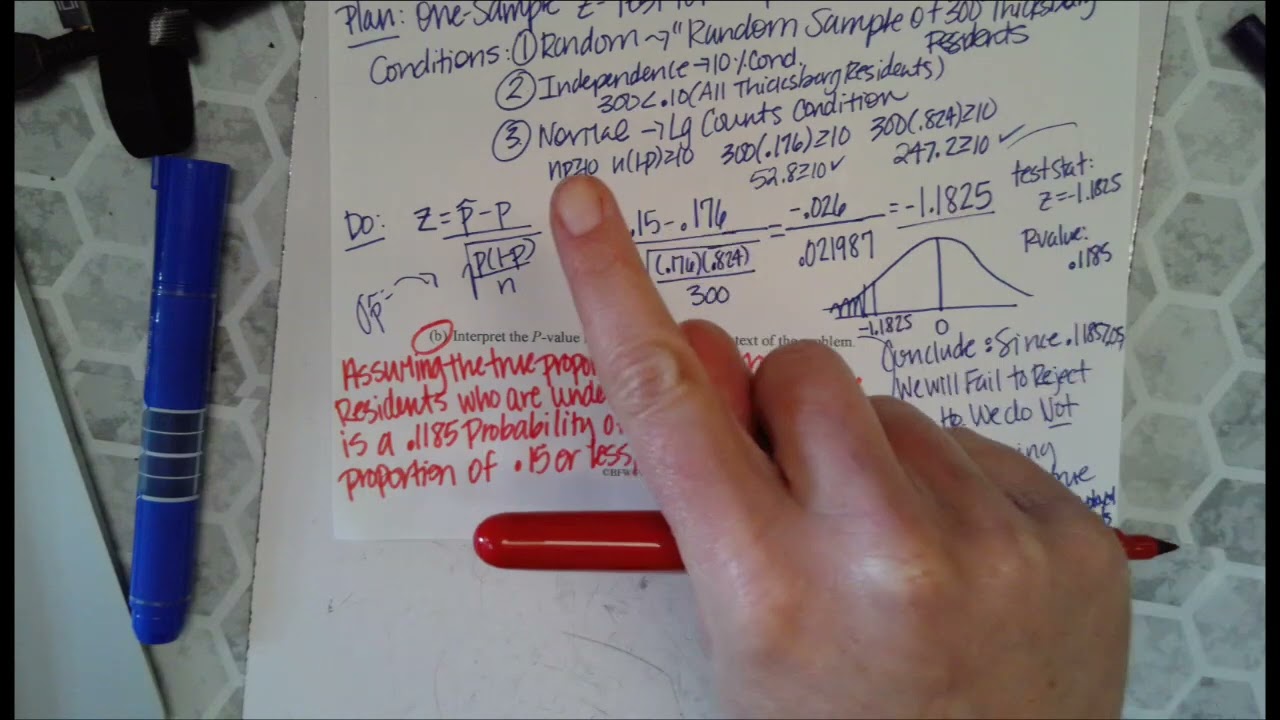 Plan: One-Sample Z-Test for
Conditions: ① Random → "Random Sample of 300 Thicksburg
Residents
② Independence → 10% Cond.
300 < .10 (All Thicksburg Residents)
③ Normal → Lg Counts Condition
np≥10 n(1-p)≥10 300(.176)≥10 300(.824)≥10
52.8≥10 ✓ 247.2≥10 ✓
test stat:
z=-1.1825
Do: Z = p̂ - p .15 - .176 = -.026 = -1.1825
√p(1-p) (.176)(.824) .021987
n 300
P-value:
.1185
-1.1825 0
(b) Interpret the P-value text of the problem.
Assuming the true propor
Residents who are unde
is a .1185 Probability o
proportion of .15 or less
Conclude: Since .1185>.05
We will Fail to Reject
Ho. We do Not